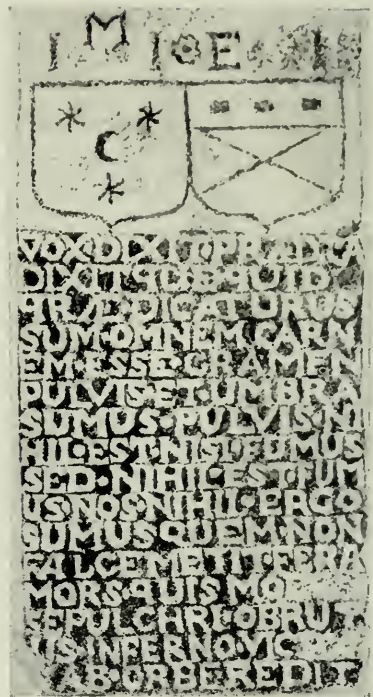 I M I E
VOX DIXIT PRÆDICA
DIXIT QUE QUID
PRÆ DICATURUS
SUM·OMNEM·CARN
EM·ESSE·GRAMEN
PULVIS·ET·UMBRA
SUMUS·PULVIS·NI
HIL·EST·NISI·FUMUS
SED·NIHIL·EST·FUM
US·NOS·NIHIL·ERGO
SUMUS·QUEM·NON
FALCE·METIT·FERA
MORS·QUIS
SEPULCHRI·OBRUT
INFERNO
AB·ORBE·REDIT